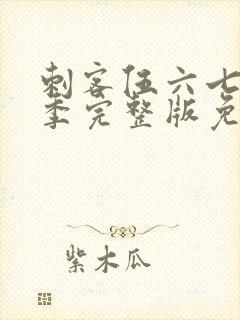 刺客伍六七
季完整版免
紫木瓜